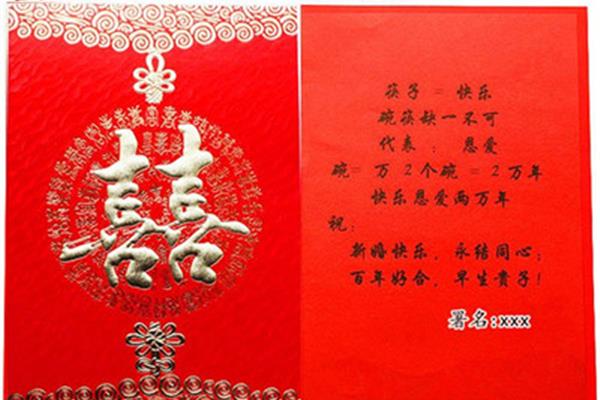 囍
筷子 = 快乐
碗筷缺一不可
代表 : 恩爱
碗= 万 2个碗 = 2万年
快乐恩爱两万年
祝:
新婚快乐，永结同心;
百年好合，早生贵子!
署名:xxx